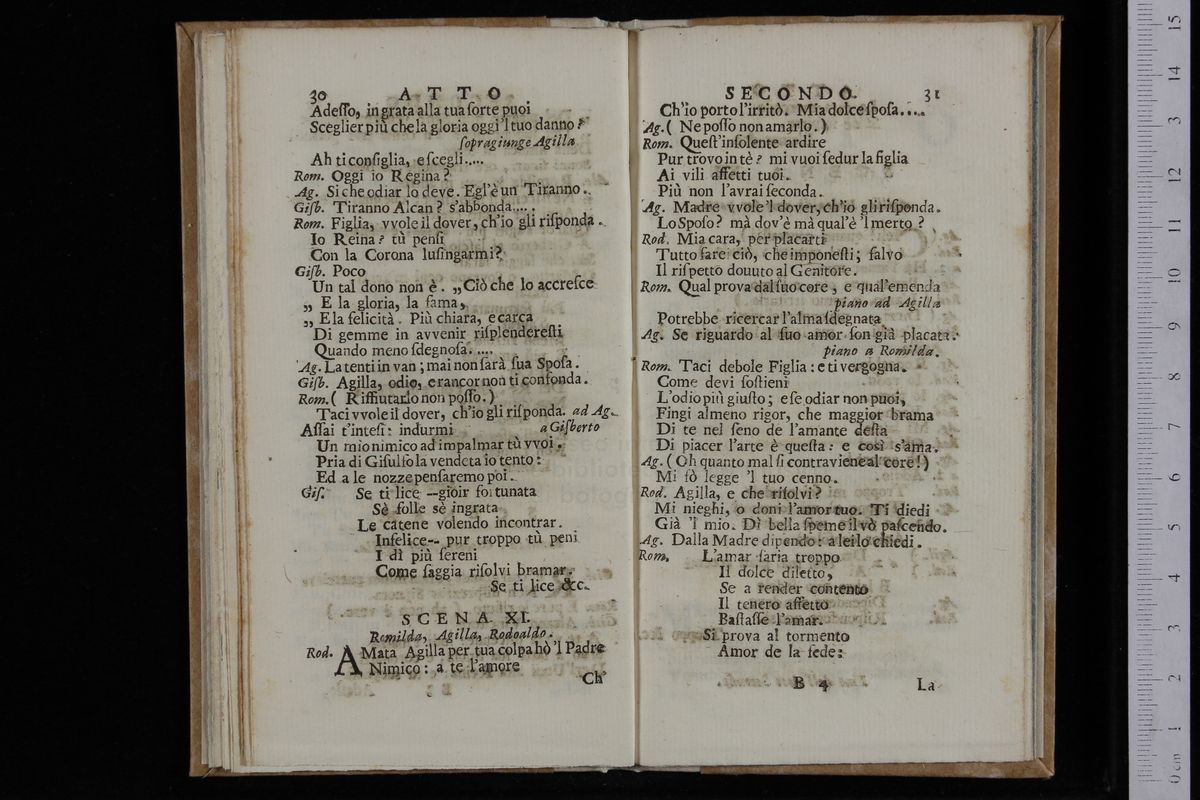 30 ATTO
Adeſſo, ingrata alla tua ſorte puoi
Sceglier più che la gloria oggi 'l tuo danno?
ſopragiunge Agilla
Ah ti conſiglia, e ſcegli.....
Rom. Oggi io Regina?
Ag. Si che odiar lo deve. Egl'è un Tiranno..
Giſb. Tiranno Alcan? s'abbonda.....
Rom. Figlia, vvole il dover, ch'io gli riſponda.
Io Reina? tù penſi
Con la Corona luſingarmi?
Giſb. Poco
Un tal dono non è. „Ciò che lo accreſce
„ E la gloria, la fama,
„ E la felicità. Più chiara, e carca
Di gemme in avvenir riſplendereſti
Quando meno ſdegnoſa.....
Ag. La tenti in van; mai non ſarà ſua Spoſa.
Giſb. Agilla, odio, e rancor non ti confonda.
Rom. ( Riffiutarlo non poſſo. )
Taci vvole il dover, ch'io gli riſponda. ad Ag.
Aſſai t'inteſi: indurmi a Giſberto
Un mio nimico ad impalmar tù vvoi.
Pria di Giſulfo la vendeta io tento:
Ed a le nozze penſaremo poi.
Giſ. Se ti lice --gioir fortunata
Sè folle sè ingrata
Le catene volendo incontrar.
Infelice-- pur troppo tù peni
I dì più ſereni
Come ſaggia riſolvi bramar.
Se ti lice &c.
SCENA XI.
Romilda, Agilla, Rodoaldo.
Rod. AMata Agilla per tua colpa hò 'l Padre
Nimico: a te l'amore
Ch'
SECONDO. 31
Ch'io porto l'irritò. Mia dolce ſpoſa.....
Ag. ( Ne poſſo non amarlo. )
Rom. Queſt'inſolente ardire
Pur trovo in tè? mi vuoi ſedur la figlia
Ai vili affetti tuoi.
Più non l'avrai ſeconda.
Ag. Madre vvole 'l dover, ch'io gli riſponda.
Lo Spoſo? mà dov'è mà qual'è 'l merto?
Rod. Mia cara, per placarti
Tutto fare ciò, che imponeſti; ſalvo
Il riſpetto douuto al Genitore.
Rom. Qual prova dal ſuo core, e qual'emenda
piano ad Agilla
Potrebbe ricercar l'alma ſdegnata
Ag. Se riguardo al ſuo amor ſon già placata.
piano a Romilda.
Rom. Taci debole Figlia: e ti vergogna.
Come devi ſoſtieni
L'odio più giuſto; e ſe odiar non puoi,
Fingi almeno rigor, che maggior brama
Di te nel ſeno de l'amante deſta
Di piacer l'arte è queſta: e così s'ama.
Ag. ( Oh quanto mal ſi contraviene al core! )
Mi fò legge 'l tuo cenno.
Rod. Agilla, e che riſolvi?
Mi nieghi, o doni l'amor tuo. Ti diedi
Già 'l mio. Dì bella ſpeme il vò paſcendo.
Ag. Dalla Madre dipendo: a lei lo chiedi.
Rom. L'amar ſaria troppo
Il dolce diletto,
Se a render contento
Il tenero affetto
Baſtaſſe l'amar.
Si prova al tormento
Amor de la fede:
B 4 La